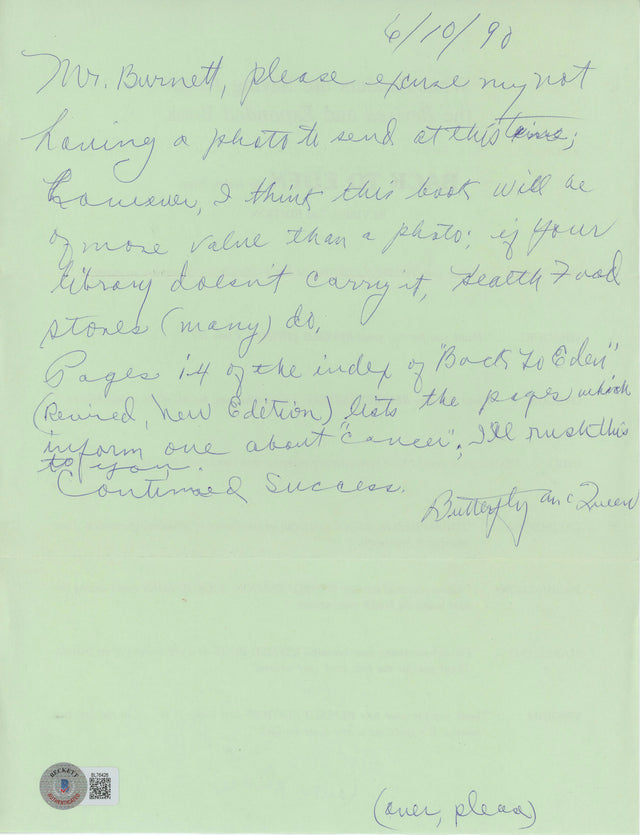 6/10/90
Mr. Burnett, please excuse my not
having a photo to send at this time;
however, I think this book will be
of more value than a photo; if your
library doesn't carry it, Health Food
stores (many) do.
Pages i-4 of the index of "Back to Eden"
(Revised, New Edition) lists the pages which
inform one about "cancer"; I'll rush this
to you.
Continued Success.
Butterfly McQueen
(over, please)
BECKETT
AUTHENTICATED
BL76426